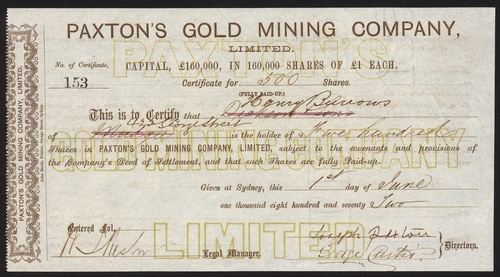 PAXTON'S GOLD MINING COMPANY,
LIMITED.
CAPITAL, £160,000, IN 160,000 SHARES OF £1 EACH.
No. of Certificate,
153
Certificate for 500 Shares.
(FULLY PAID-UP.)
This is to Certify that Henry Burrows
George Street
of London is the holder of Five hundred
Shares in PAXTON'S GOLD MINING COMPANY, LIMITED, subject to the covenants and provisions of
the Company's Deed of Settlement, and that such Shares are fully Paid-up.
Given at Sydney, this 1st day of June
one thousand eight hundred and seventy Two
Entered Fol.
Legal Manager.
Joseph Paxton
Directors.
PAXTON'S
GOLD MINING COMPANY
LIMITED
PAXTON'S GOLD MINING COMPANY, LIMITED.